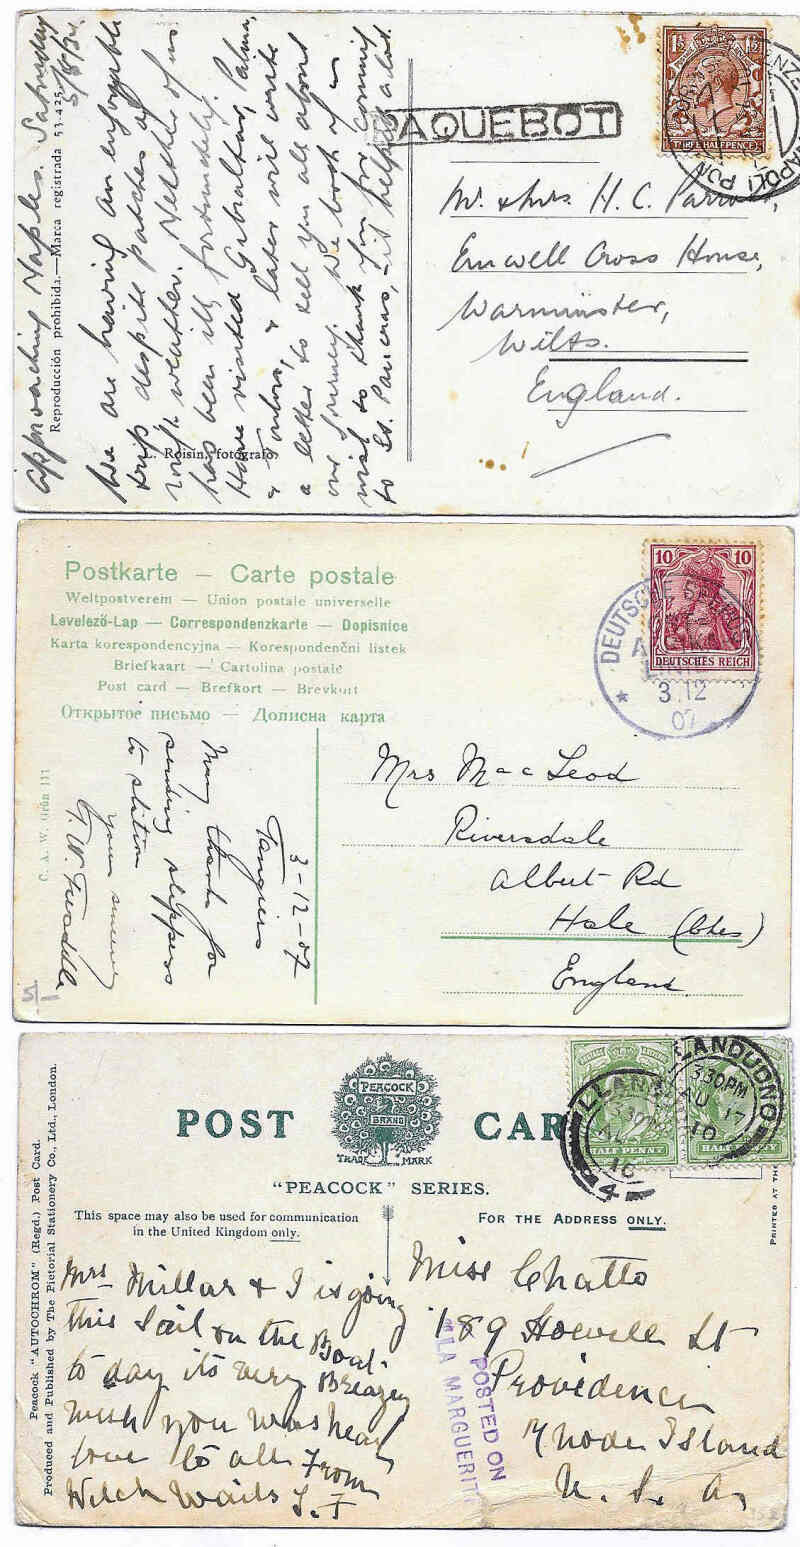 Approaching Naples. Saturday
5/8/34.
We are having an enjoyable
trip despite patches of
rough weather. Neither of us
has been ill, fortunately.
Have visited Gibraltar, Palma,
& Toulon, & later will write
a letter to tell you all about
our journey. We both
wish to thank you for coming
to St. Pancras, - it helped a lot.
Reproducción prohibida.—Marca registrada 53.425.
L. Roisin, fotógrafo.
PAQUEBOT
1½ 1½
THREE HALFPENCE
NAPOLI
Mr. & Mrs. H. C.
Emwell Cross House,
Warminster,
Wilts.
England.
Postkarte — Carte postale
Weltpostverein — Union postale universelle
Levelező-Lap — Correspondenzkarte — Dopisnice
Karta korespondencyjna — Korespondenční listek
Briefkaart — Cartolina postale
Post card — Brefkort — Brevkort
Открытое письмо — Дописна карта
10 10
DEUTSCHES REICH
DEUTSCHE SEEPOST
LINIE
3.12
07
3-12-07
Tangiers
Many thanks for
sending slippers
to station
yours sincerely
C. A. W. Grün 111
5/1
Mrs Mac Leod
Riversdale
Albert Rd
Hale (Ches)
England.
POST CARD
PEACOCK
BRAND
TRADE MARK
"PEACOCK" SERIES.
This space may also be used for communication
in the United Kingdom only.
FOR THE ADDRESS ONLY.
HALF PENNY HALF PENNY
LLANDUDNO
3.30PM
AU 17
10
LLANDUDNO
3.30PM
AU
10
4
Peacock "AUTOCHROM" (Regd.) Post Card.
Produced and Published by The Pictorial Stationery Co., Ltd., London.
PRINTED AT THE
Mrs Millar & I is going
this Sail on the Boat
to day its very Breazey
wish you was hear
love to all From
POSTED ON
"LA MARGUERITE
Miss Chatto
189 Howell St
Providence
Rhode Island
U. S. A.